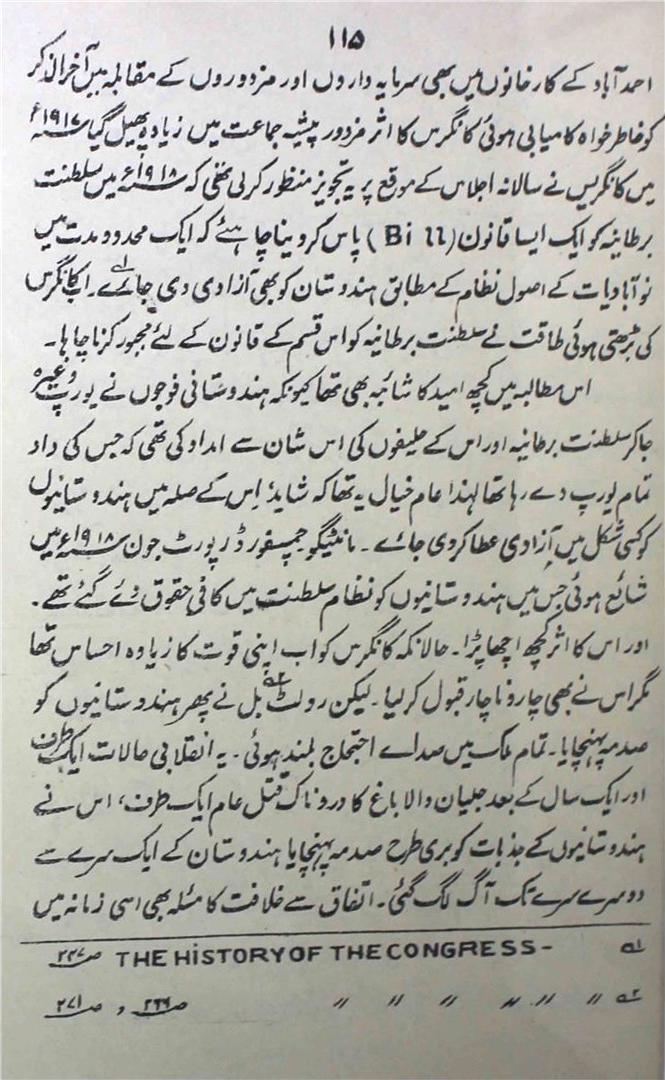 ۱۱۵
احمد آباد کے کارخانوں میں بھی سرمایہ داروں اور مزدوروں کے مقابلہ میں آخر الذکر
کو خاطر خواہ کامیابی ہوئی کانگرس کا اثر مزدور پیشہ جماعت میں زیادہ پھیل گیا ۱۹۱۷ء
میں کانگریس نے سالانہ اجلاس کے موقع پر یہ تجویز منظور کر لی تھی کہ ۱۹۱۸ء میں سلطنت
برطانیہ کو ایک ایسا قانون (Bill) پاس کر دینا چاہئے کہ ایک محدود مدت میں
نو آبادیات کے اصول نظام کے مطابق ہندوستان کو بھی آزادی دی جائے۔ اب کانگرس
کی بڑھتی ہوئی طاقت نے سلطنت برطانیہ کو اس قسم کے قانون کے لئے مجبور کرنا چاہا۔
اس مطالبہ میں کچھ امید کا شائبہ بھی تھا کیونکہ ہندوستانی فوجوں نے یورپ وغیرہ
جا کر سلطنت برطانیہ اور اس کے حلیفوں کی اس شان سے امداد کی تھی کہ جس کی داد
تمام یورپ دے رہا تھا لہٰذا عام خیال یہ تھا کہ شاید اِس کے صلہ میں ہندوستانیوں
کو کسی شکل میں آزادی عطا کر دی جائے۔ مانٹیگو چمپسفورڈ رپورٹ جون ۱۹۱۸ء میں
شائع ہوئی جس میں ہندوستانیوں کو نظام سلطنت میں کافی حقوق دئے گئے تھے۔
اور اس کا اثر کچھ اچھا پڑا۔ حالانکہ کانگرس کو اب اپنی قوت کا زیادہ احساس تھا
مگر اس نے بھی چار و ناچار قبول کر لیا۔ لیکن رولٹ ۲؎ بل نے پھر ہندوستانیوں کو
صدمہ پہنچایا۔ تمام ملک میں صدائے احتجاج بلند ہوئی۔ یہ انقلابی حالات ایک طرف
اور ایک سال کے بعد جلیان والا باغ کا دردناک قتل عام ایک طرف، اس نے
ہندوستانیوں کے جذبات کو بری طرح صدمہ پہنچایا ہندوستان کے ایک سرے سے
دوسرے سرے تک آگ لگ گئی۔ اتفاق سے خلافت کا مسئلہ بھی اسی زمانہ میں
۱؎ THE HiSTORY OF THE CONGRESS- ص ۲۴۷
۲؎ 〃 〃 〃 〃 〃 〃 ص ۲۶۹ و ص ۲۷۱